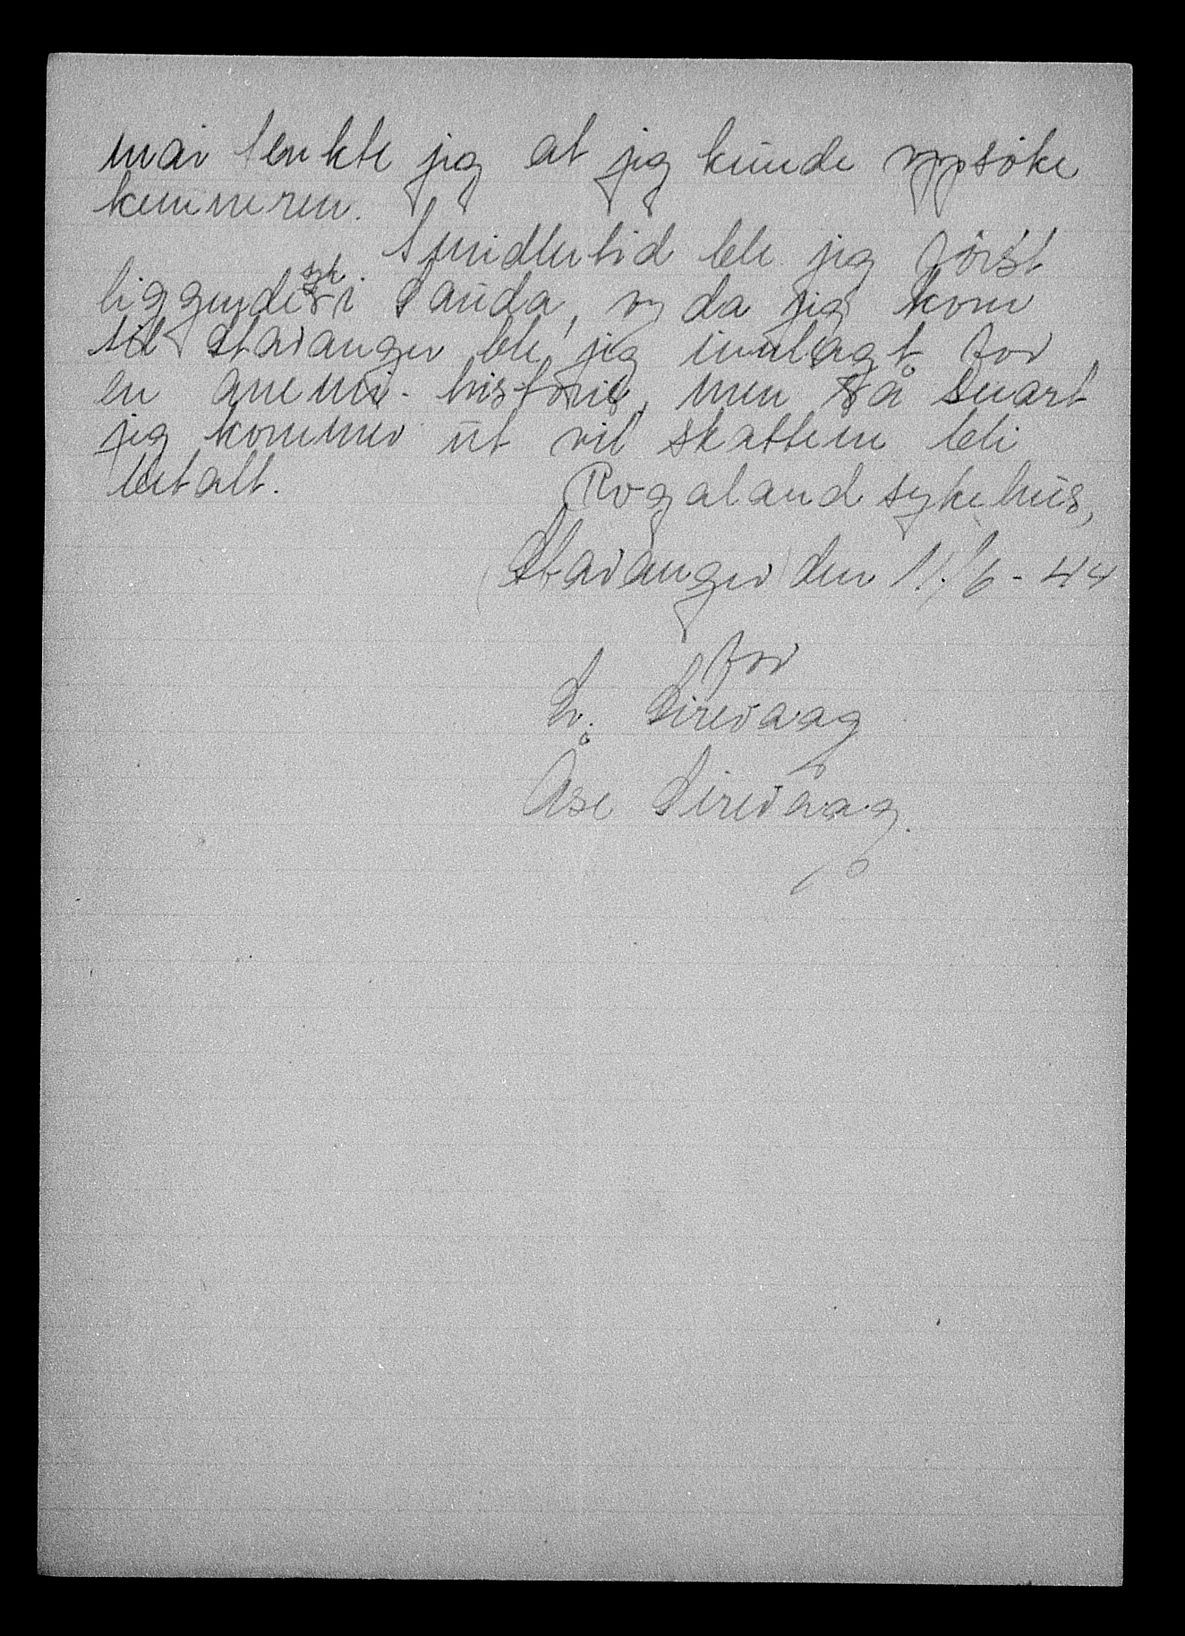 mai tenkte jeg at jeg kunde oppsöke
kemneren.
Imidlertid ble jeg först
liggende syk i Sauda, og da jeg kom
til Stavanger ble jeg innlagt for
en anemi-historie, men så snart
jeg kommer ut vil skattene bli
betalt.
Rogaland sykehus,
Stavanger den 11/6-44
for
L. Sirevaag
Åse Sirevaag.